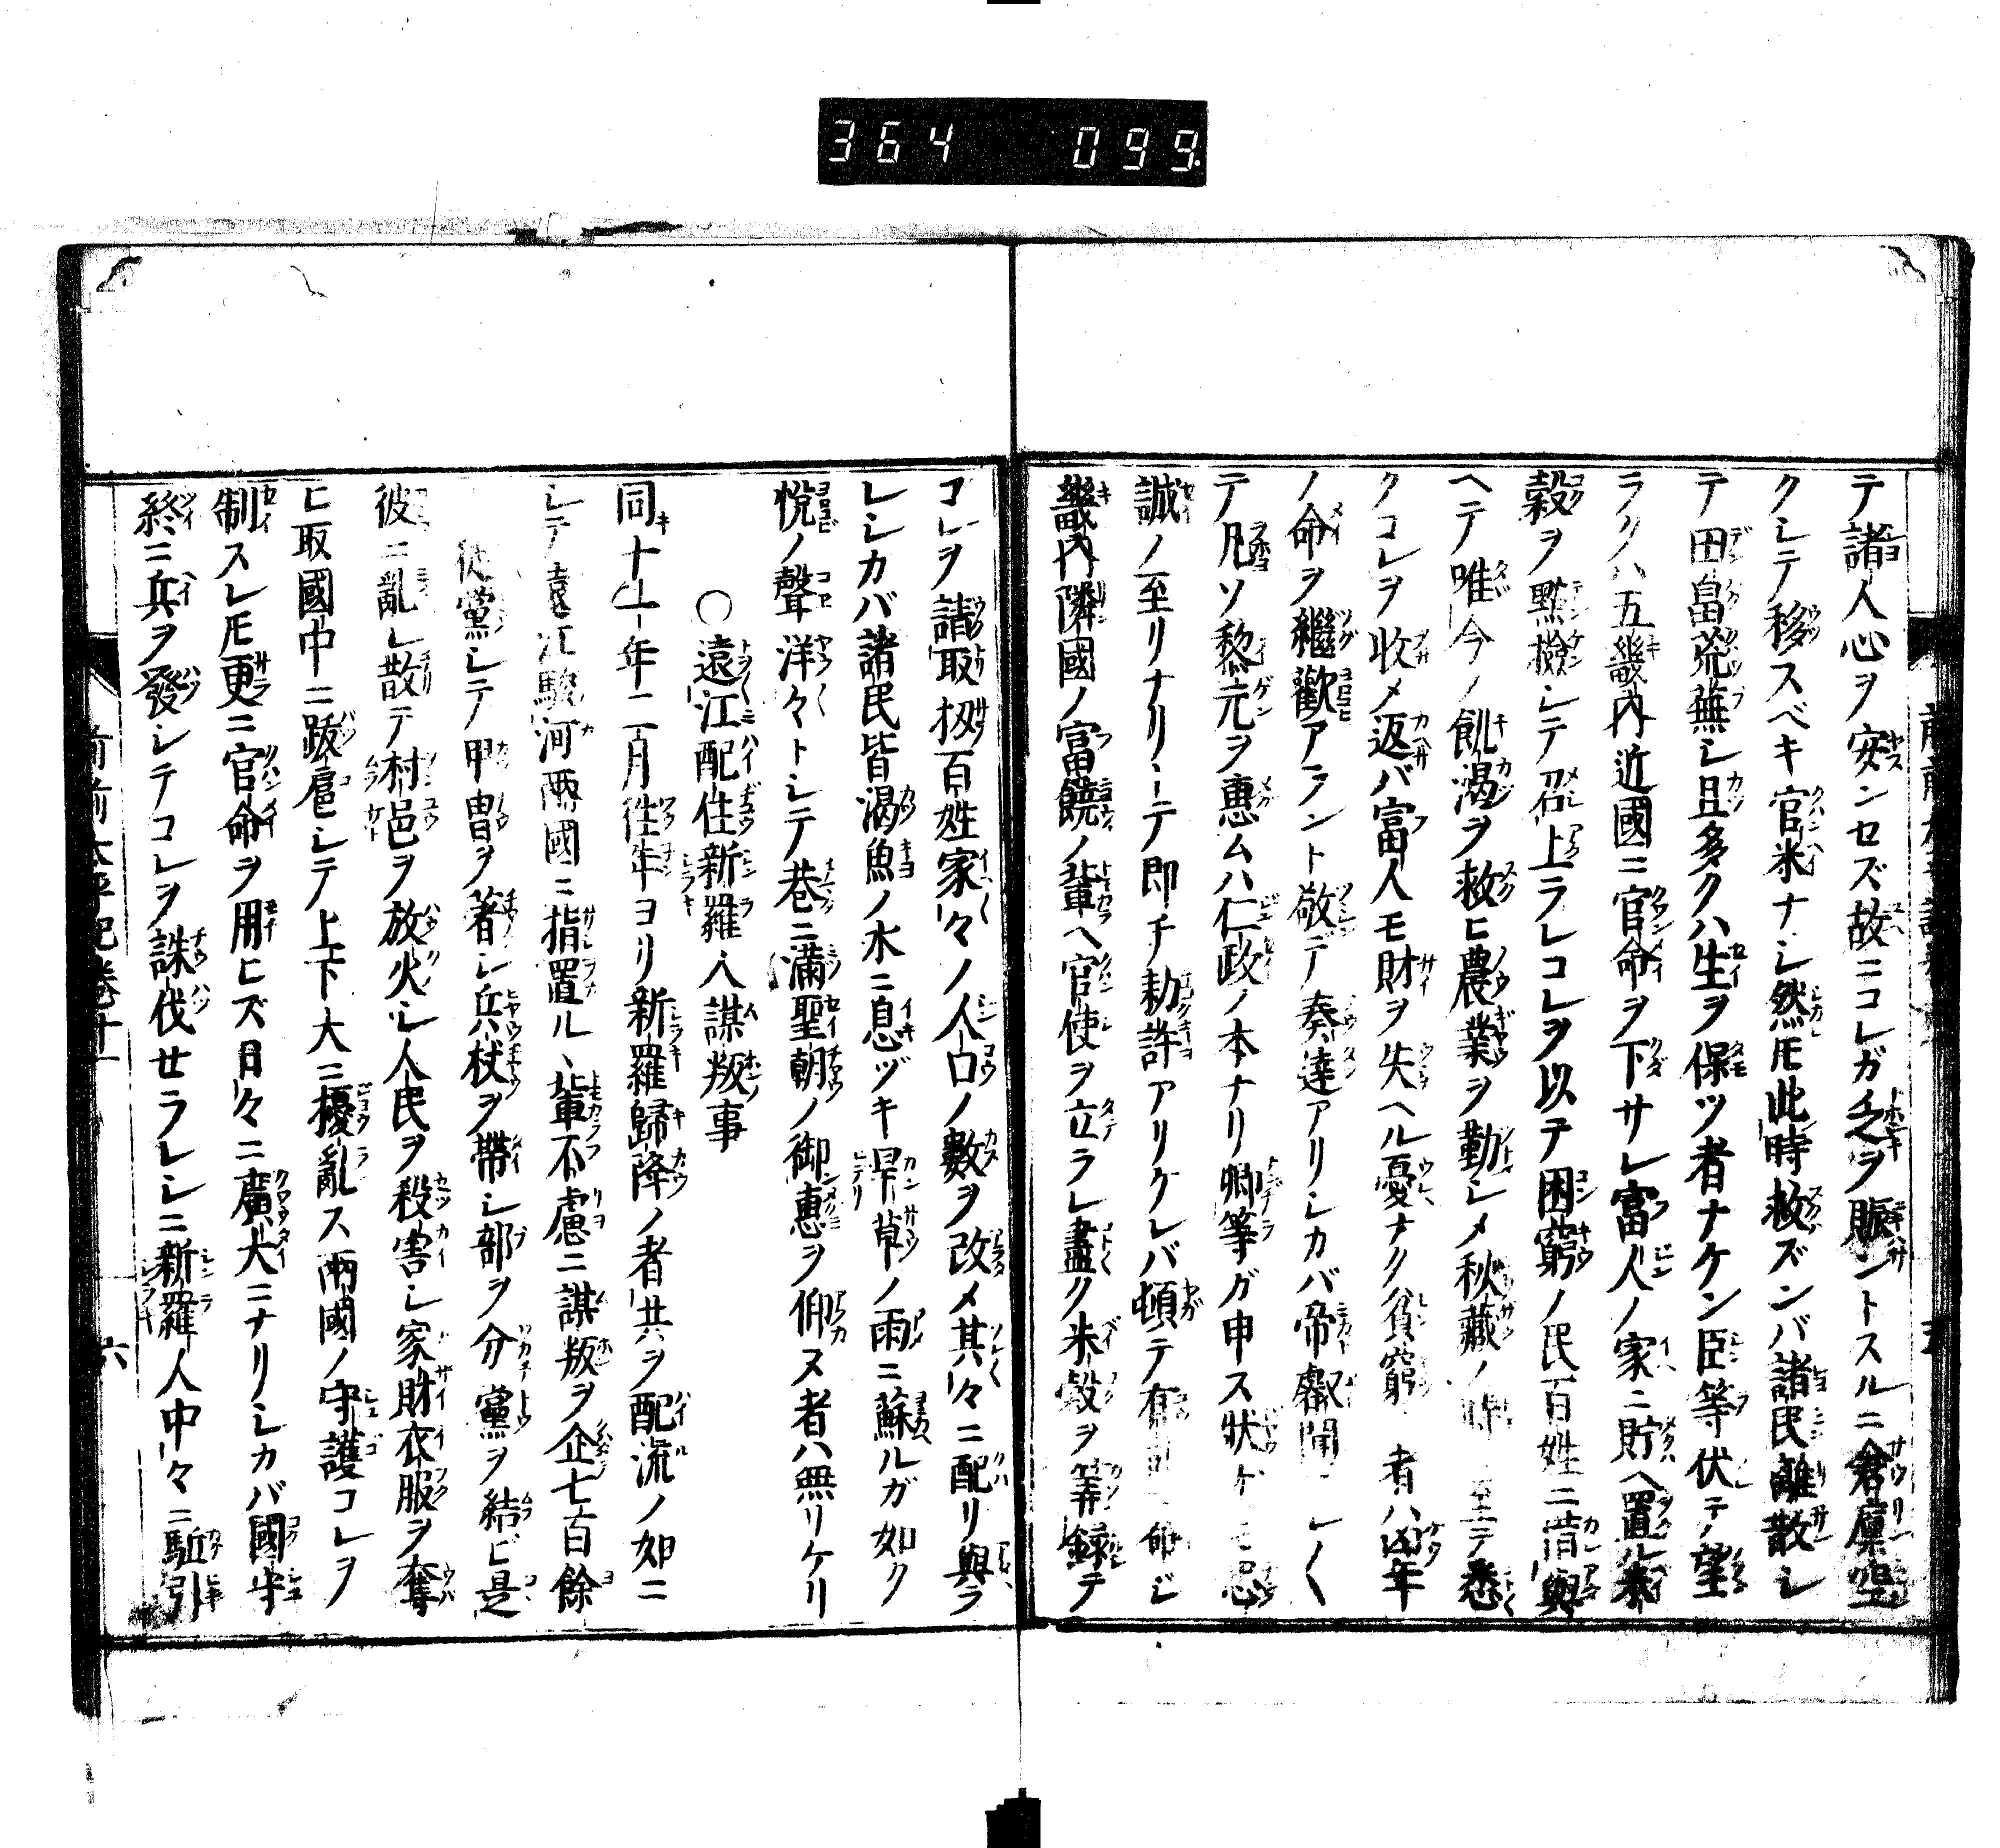 364 099
テ諸人心ヲ安ンセズ故ニコレガ乏ヲ賑ントスルニ倉廩空
クシテ移スベキ官米ナシ然𪜈此時救ズンバ諸民離散シ
テ田畠荒蕪シ且多クハ生ヲ保ツ者ナケン臣等伏テ望
ラクハ五畿內近國ニ官命ヲ下サレ富人ノ家ニ貯ヘ置ル米
穀ヲ點檢シテ召上ラレコレヲ以テ困窮ノ民百姓ニ借與
ヘテ唯今ノ飢渴ヲ救ヒ農業ヲ勤シメ秋藏ノ時 至テ悉
クコレヲ收メ返バ富人モ財ヲ失ヘル憂ナク貧窮 者ハ凶年
ノ命ヲ繼歡アラント敬テ奏達アリシカバ帝叡聞 シ〱
テ凡ソ黎元ヲ惠ムハ仁政ノ本ナリ卿等ガ申ス狀 忠
誠ノ至リナリトテ即チ勅許アリケレバ頓テ有司 命ジ
畿內隣國ノ富饒ノ輩ヘ官使ヲ立ラレ盡ク米穀ヲ筭錄テ
コレヲ請取扨百姓家々ノ人口ノ數ヲ改メ其々ニ配リ與ラ
レシカバ諸民皆渴魚ノ水ニ息ヅキ旱草ノ雨ニ蘇ルガ如ク
悅ノ聲洋々トシテ巷ニ滿聖朝ノ御惠ヲ仰ヌ者ハ無リケリ
○遠江配住新羅人謀叛事
同十一年二月徃年ヨリ新羅歸降ノ者共ヲ配流ノ如ニ
シテ遠江駿河兩國ニ指置ルヽ輩不慮ニ謀叛ヲ企七百餘
徒黨シテ甲冑ヲ著シ兵杖ヲ帶シ部ヲ分黨ヲ結ビ是
彼ニ亂レ散テ村邑ヲ放火シ人民ヲ殺害シ家財衣服ヲ奪
ヒ取國中ニ跋扈シテ上下大ニ擾亂ス兩國ノ守護コレヲ
制スレ𪜈更ニ官命ヲ用ヒズ日々ニ廣大ニナリシカバ國守
終ニ兵ヲ發シテコレヲ誅伐セラレシニ新羅人中々ニ駈引
前前太平記卷十一
六